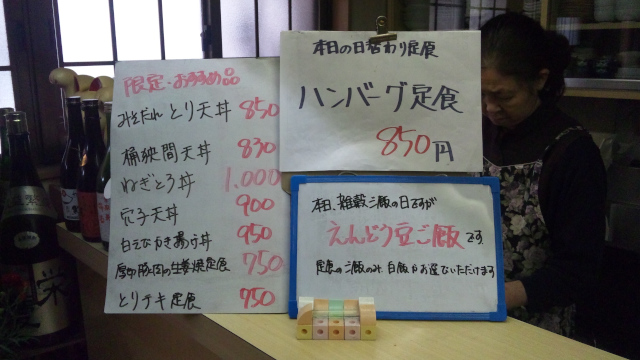 限定・おすすめ品
みそだれとり天丼 850
桶狭間天丼 830
ねぎとろ丼 1,000
穴子天丼 900
白えびかき揚げ丼 950
厚切豚肉の生姜焼定食 750
とりテキ定食 950
本日の日替わり定食
ハンバーグ定食
850円
本日、雑穀ご飯の日ですが
えんどう豆ご飯です
定食のご飯のみ、白飯かお選びいただけます